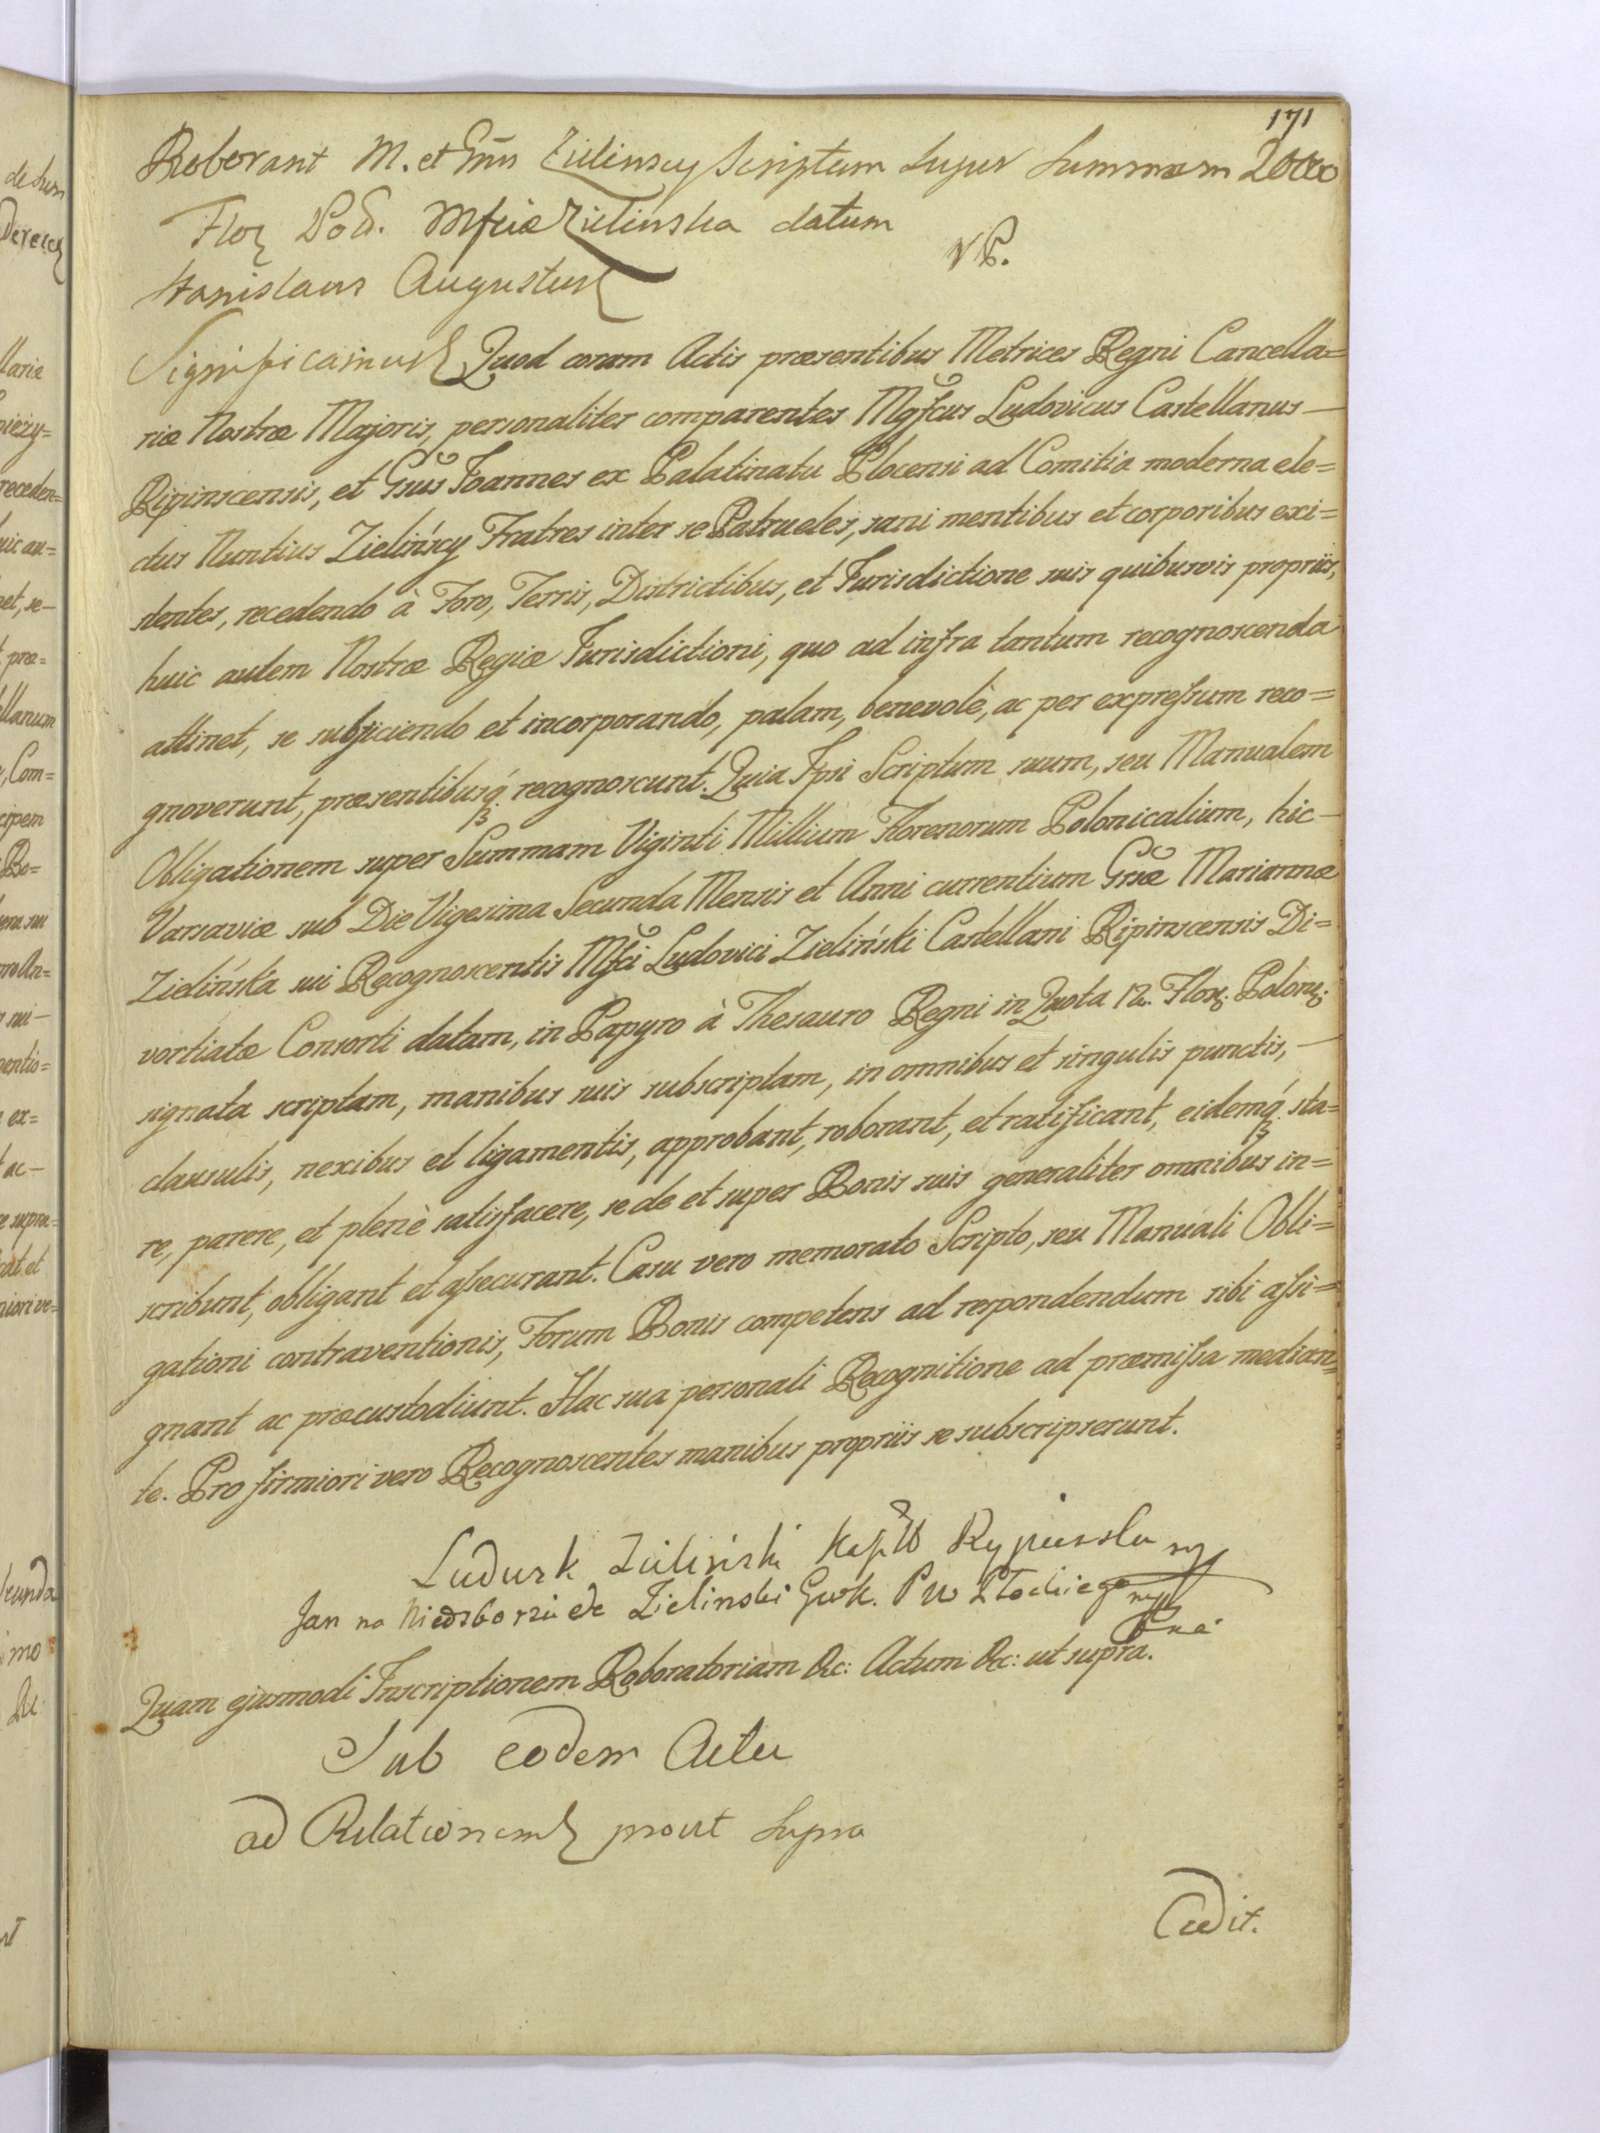 171
Roborant M. et Gnus Zielinscy Scriptum super Summam 20000
Flor Pol. Mfcae Zielinska datum
VP.
Stanislaus Augustus
Significamus Quod coram Actis præsentibus Metrices Regni Cancella=
riæ Nostræ Majoris, personaliter comparentes Mgfcus Ludovicus Castellanus —
Ripinscensis, et Gsus Joannes ex Palatinatu Plocensi ad Comitia moderna ele=
ctus Nuntius Zielińscy Fratres inter se Patrueles, sani mentibus et corporibus exi=
stentes, recedendo à Foro, Terris, Districtibus, et Jurisdictione suis quibusvis propriis,
huic autem Nostræ Regiæ Jurisdictioni, quo ad infra tantum recognoscenda
attinet, se subjiciendo et incorporando, palam, benevolè, ac per expressum reco=
gnoverunt, præsentibusq́ recognoscunt. Quia Ipsi Scriptum suum, seu Manualem
Obligationem super Summam Viginti Millium Florenorum Polonicalium, hic —
Varsaviæ sub Die Vigesima Secunda Mensis et Anni currentium Gsæ Mariannæ
Zielińska sui Recognoscentis Mfci Ludovici Zieliński Castellani Ripinscensis Di=
vortiatæ Consorti datam, in Papyro à Thesauro Regni in Quota 12. Flor: Polon:
signata scriptam, manibus suis subscriptam, in omnibus et singulis punctis, —
clausulis, nexibus et ligamentis, approbant, roborant, et ratificant, eidemq́ sta=
re, parere, et plenè satisfacere, se de et super Bonis suis generaliter omnibus in=
scribunt, obligant et assecurant. Casu vero memorato Scripto, seu Manuali Obli=
gationi contraventionis, Forum Bonis competens ad respondendum sibi assi=
gnant ac præcustodiunt. Hac sua personali Recognitione ad præmissa median=
te. Pro firmiori vero Recognoscentes manibus propriis se subscripserunt.
Ludwik Zieliński Kasztl Rypinski
Jan na Niedzborzu de Zielinski PW Płockiego
Quam ejusmodi Inscriptionem Roboratoriam &c: Actum &c: ut supra.
Sub eodem Actu
ad Relationem prout supra
Cedit.